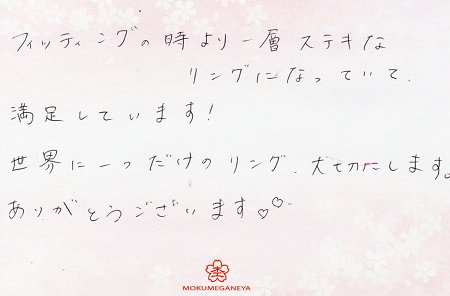 フィッティングの時より一層ステキな
リングになっていて、
満足しています!
世界に一つだけのリング、大切にします。
ありがとうございます♡♡
MOKUMEGANEYA